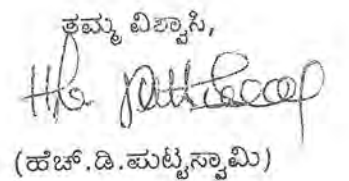 ತಮ್ಮ ವಿಶ್ವಾಸಿ,
(ಹೆಚ್.ಡಿ.ಪುಟ್ಟಸ್ವಾಮಿ)